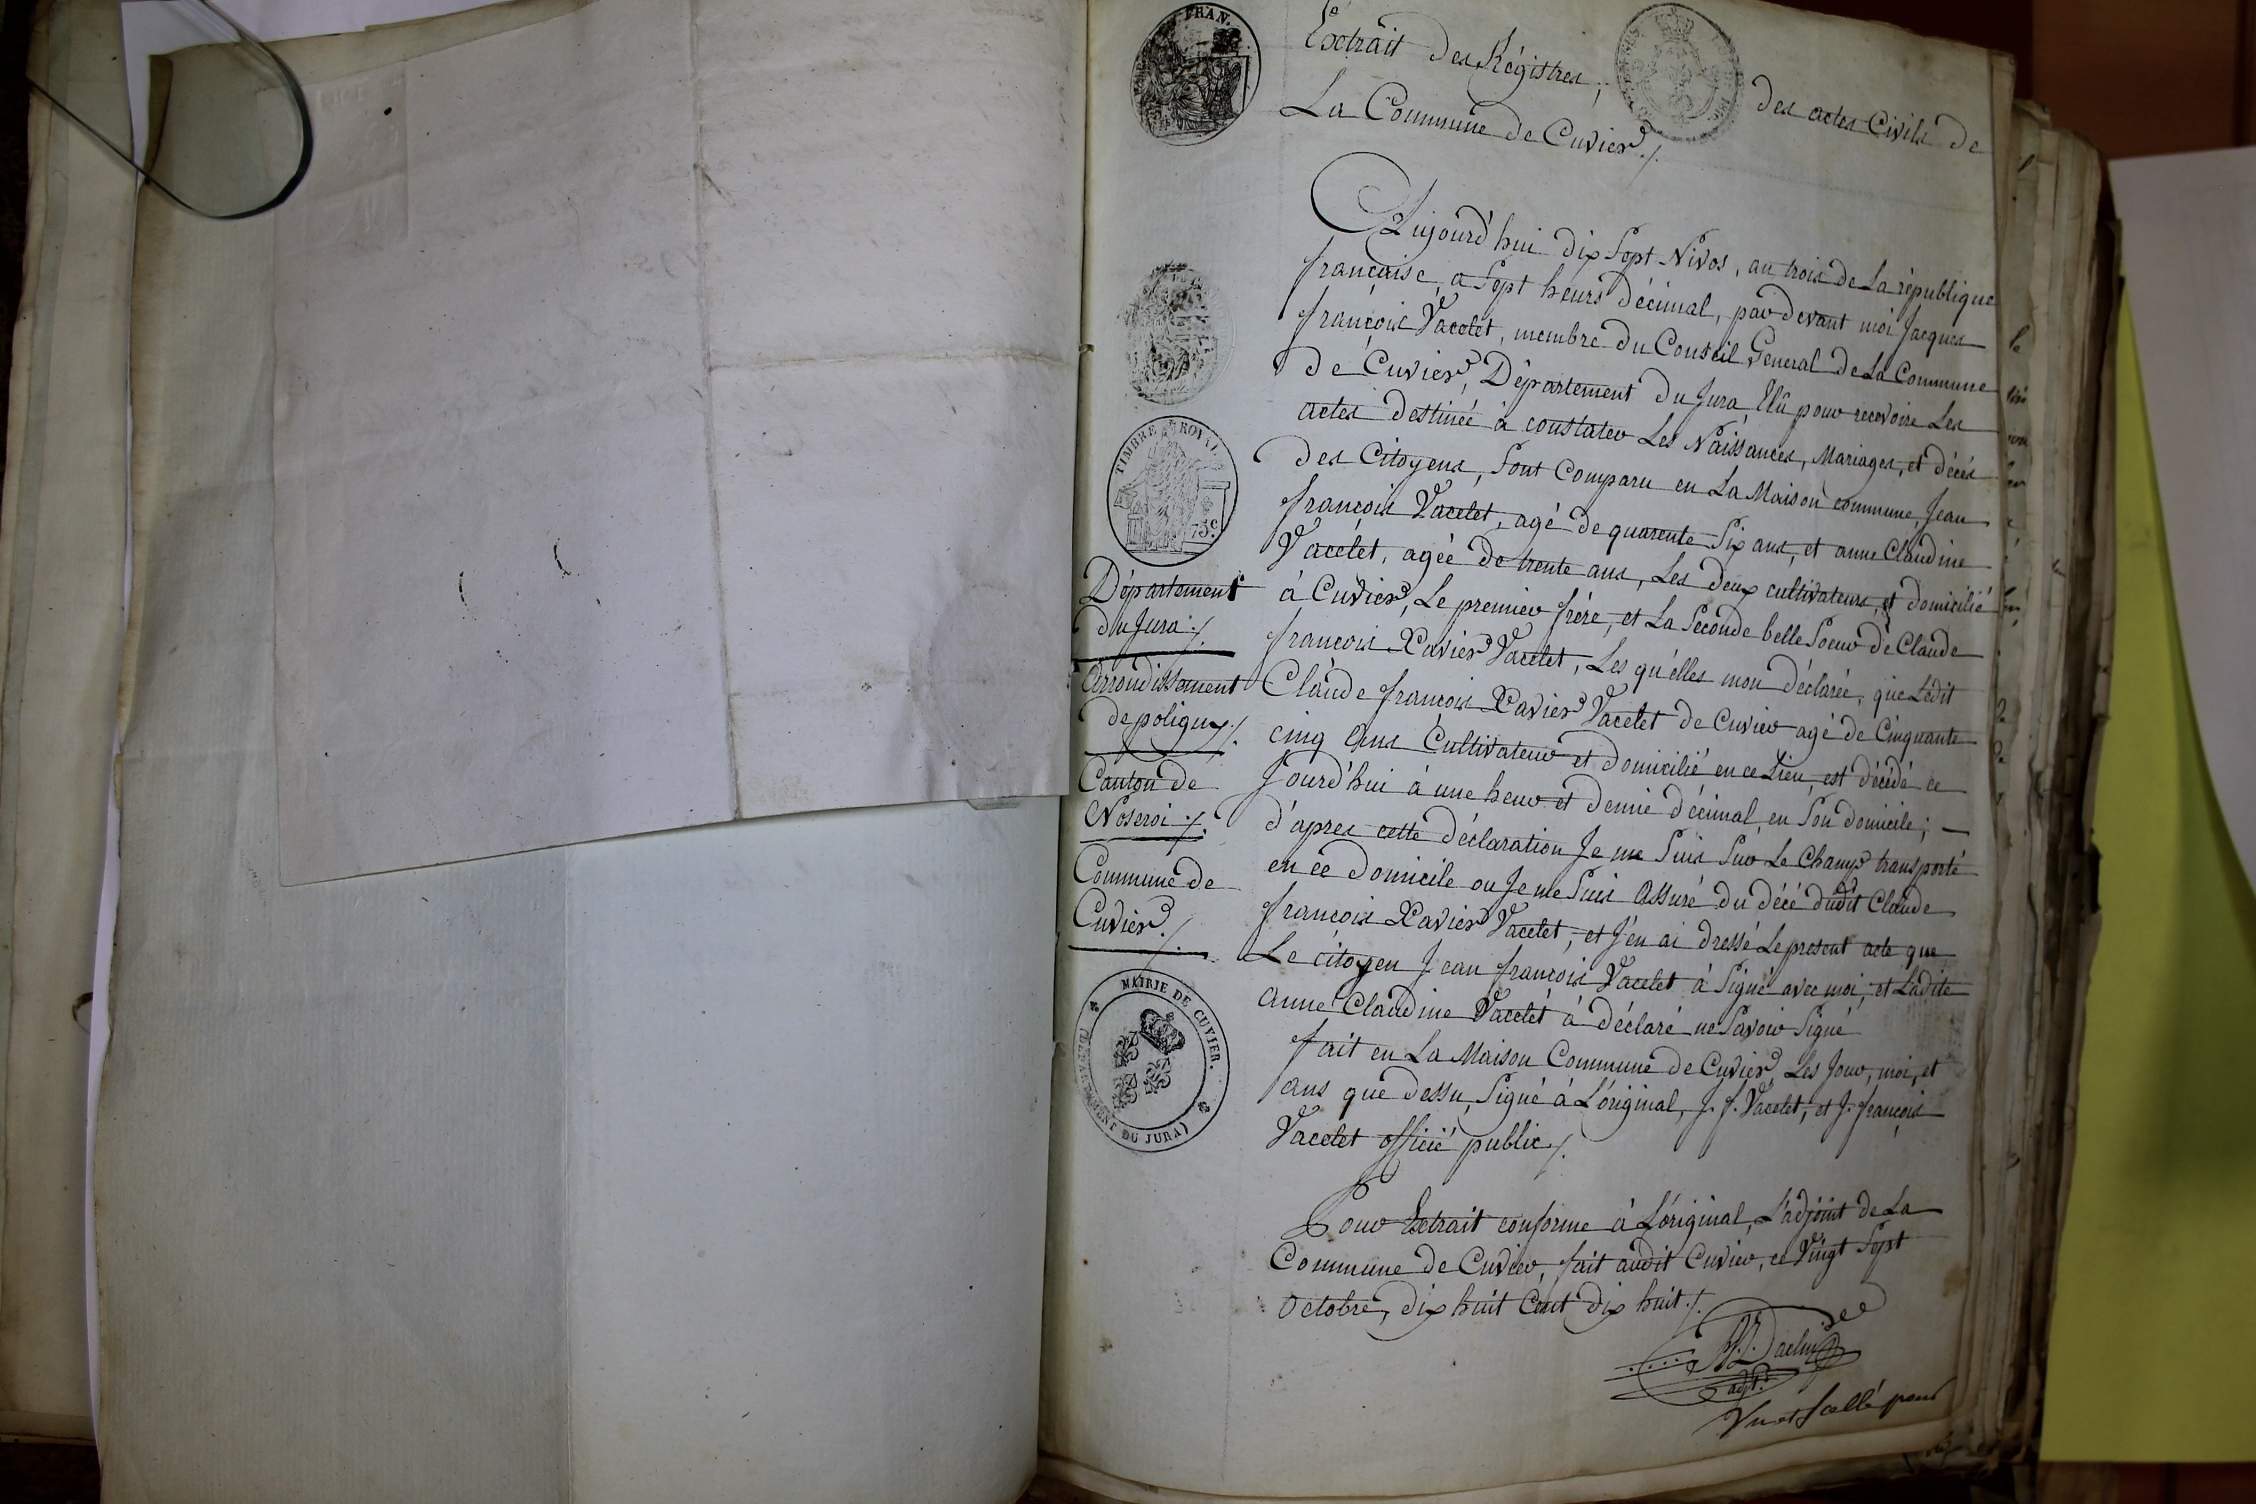 Extrait des Régistres, des actes Civils de
La Commune de Cuvier ./.
FRAN.
TIMBRE ROYAL
75.c
Département
du Jura ./.
Arrondissement
de poligny ./.
Canton de
Noseroi ./.
Commune de
Cuvier ./.
MAIRIE DE CUVIER.
(DÉPARTEMENT DU JURA)
Aujourd'hui dix Sept Nivos, an trois de La république
française, a Sept heurs décimal, par devant moi Jacques
françois Vacelet, membre du Conseil General de La Commune
de Cuvier, Département du Jura, Elû pour recevoire Les
actes destinée à constater Les Naissances, Mariages, et décés
des Citoyens, Sont Comparu en La Maison commune, Jean
françois Vacelet, agé de quarente Six ans, et anne Claudine
Vacelet, agée de trente ans, Les deux cultivateurs, et domicilié
à Cuvier, Le premier frére, et La Seconde belle Soeur de Claude
françois Xavier Vacelet, Les qu'elles mon déclarée, que Ledit
Claude françois Xavier Vacelet de Cuvier agé de Cinquante
cinq Ans Cultivateur et domicilié en ce Lieu, est décédé ce
Jourd'hui à une heur et demie décimal, en Son domicile; —
d'apres cette déclaration Je me Suis Sur Le Champ transporté
en ce domicile ou Je me Suis Assuré du décé dudit Claude
françois Xavier Vacelet, et J'en ai dressé Le present acte que
Le citoyen Jean françois Vacelet à Signé avec moi, et Ladite
anne Claudine Vacelet à déclaré ne Savoir Signé
fait en La Maison Commune de Cuvier Les Jour, moi, et
ans que dessu, Signé à L'original, J. f. Vacelet, et J. françois
Vacelet officié public ./.
Pour Extrait conforme à L'original, L'adjoint de La
Commune de Cuvier, fait audit Cuvier, ce Vingt Sept
Octobre, dix huit Cent dix huit ./.
adjt.
Vu et Scellé pour